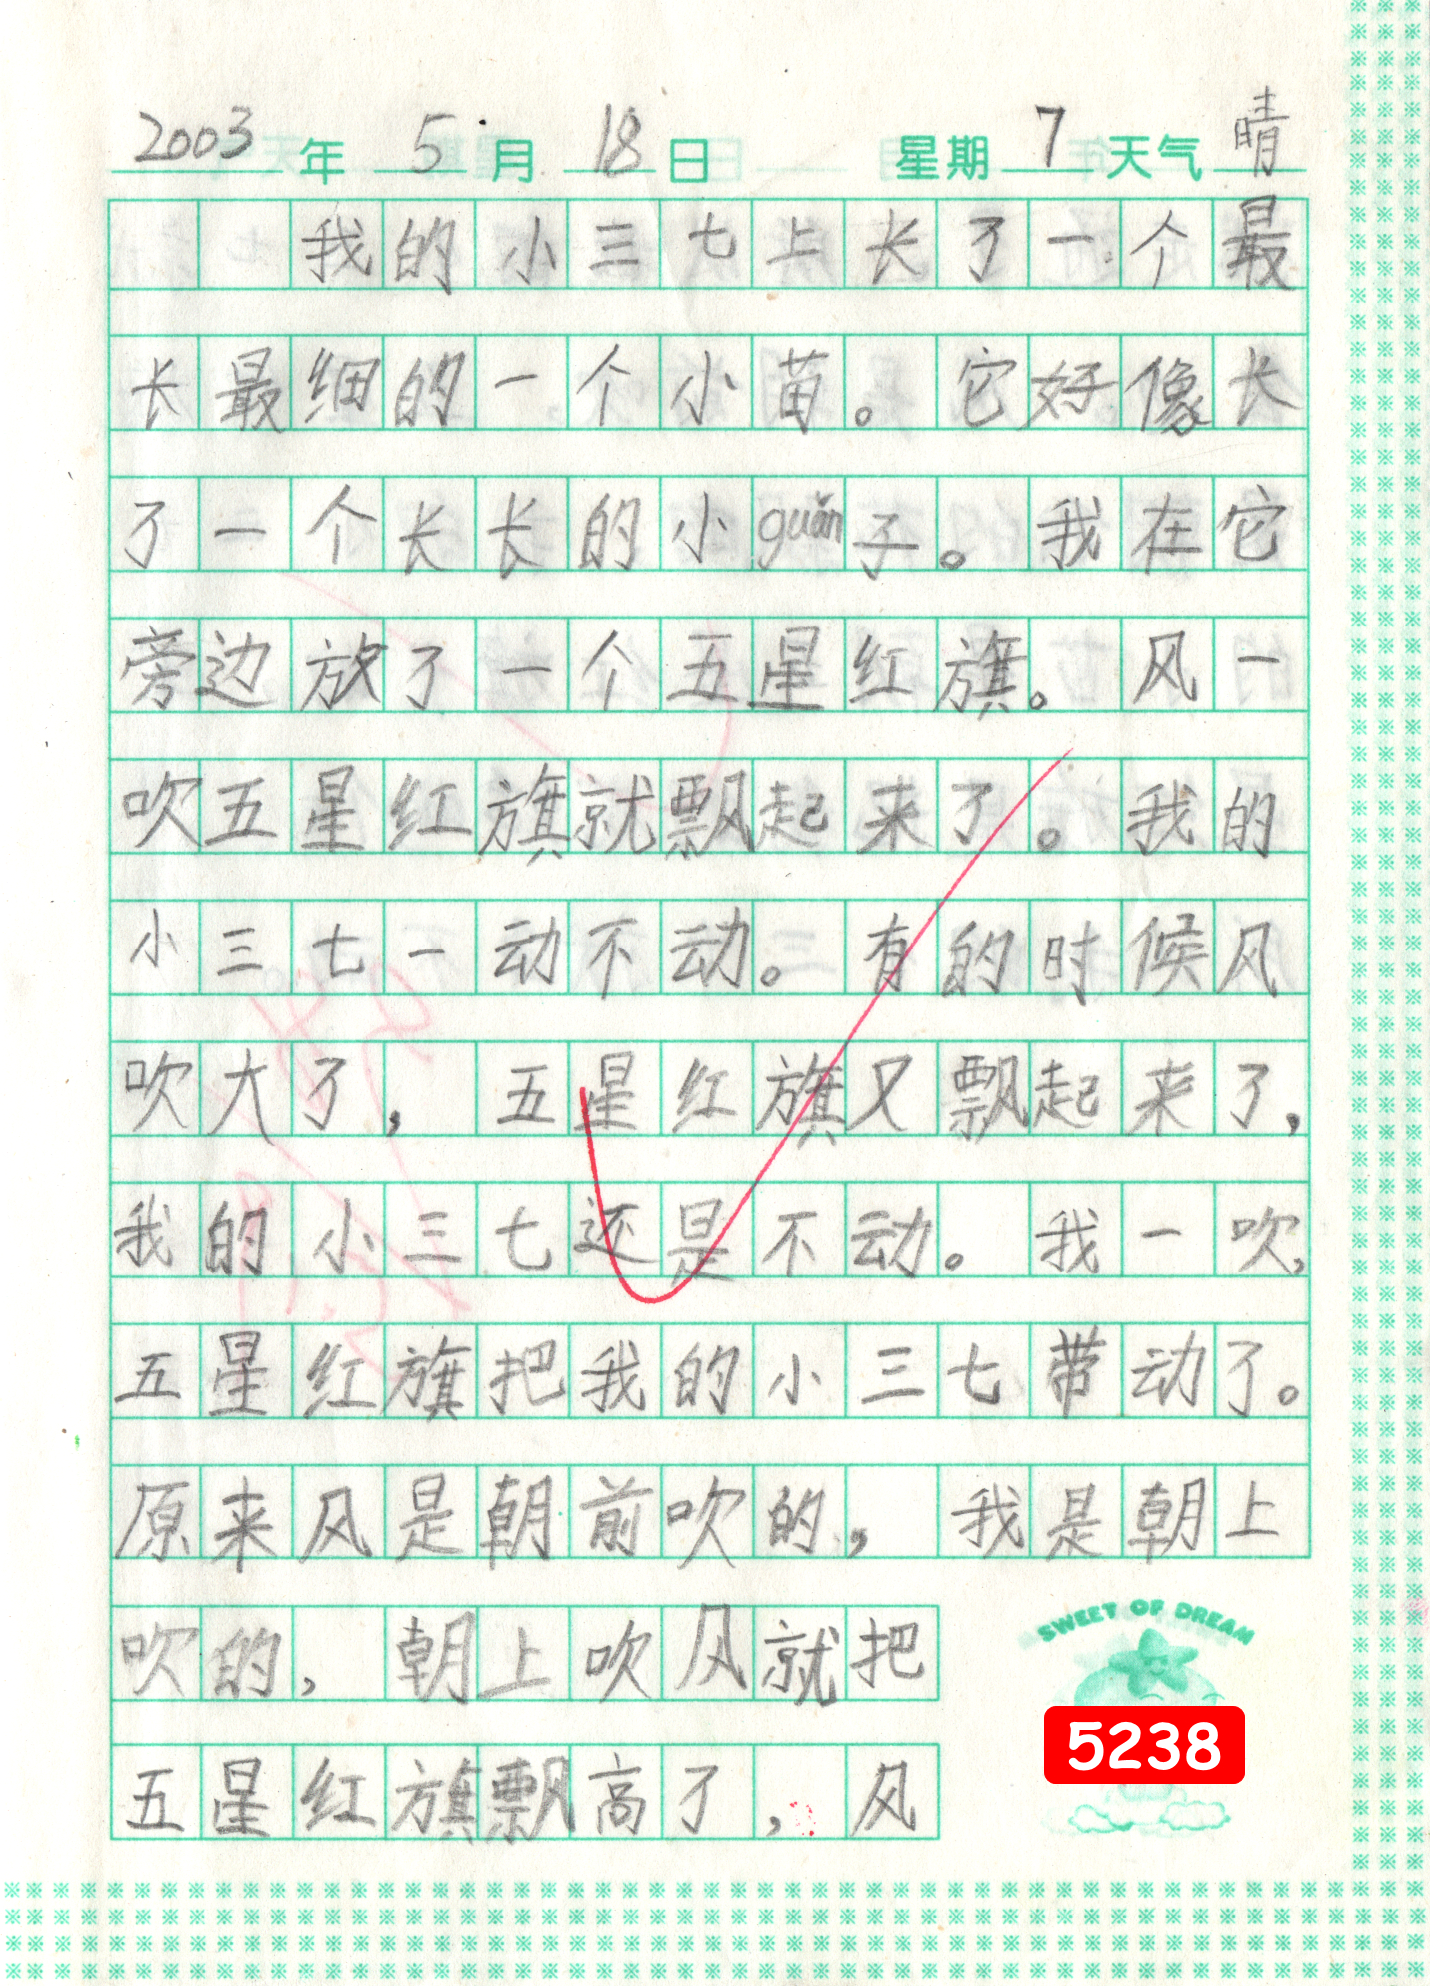 2003年 5月 18日 星期 7 天气 晴
我的小三七上长了一个最
长最细的一个小苗。它好像长
了一个长长的小guǎn子。我在它
旁边放了一个五星红旗。风一
吹五星红旗就飘起来了。我的
小三七一动不动。有的时候风
吹大了，五星红旗又飘起来了，
我的小三七还是不动。我一吹，
五星红旗把我的小三七带动了。
原来风是朝前吹的，我是朝上
吹的，朝上吹风就把
五星红旗飘高了，风
SWEET OF DREAM
5238